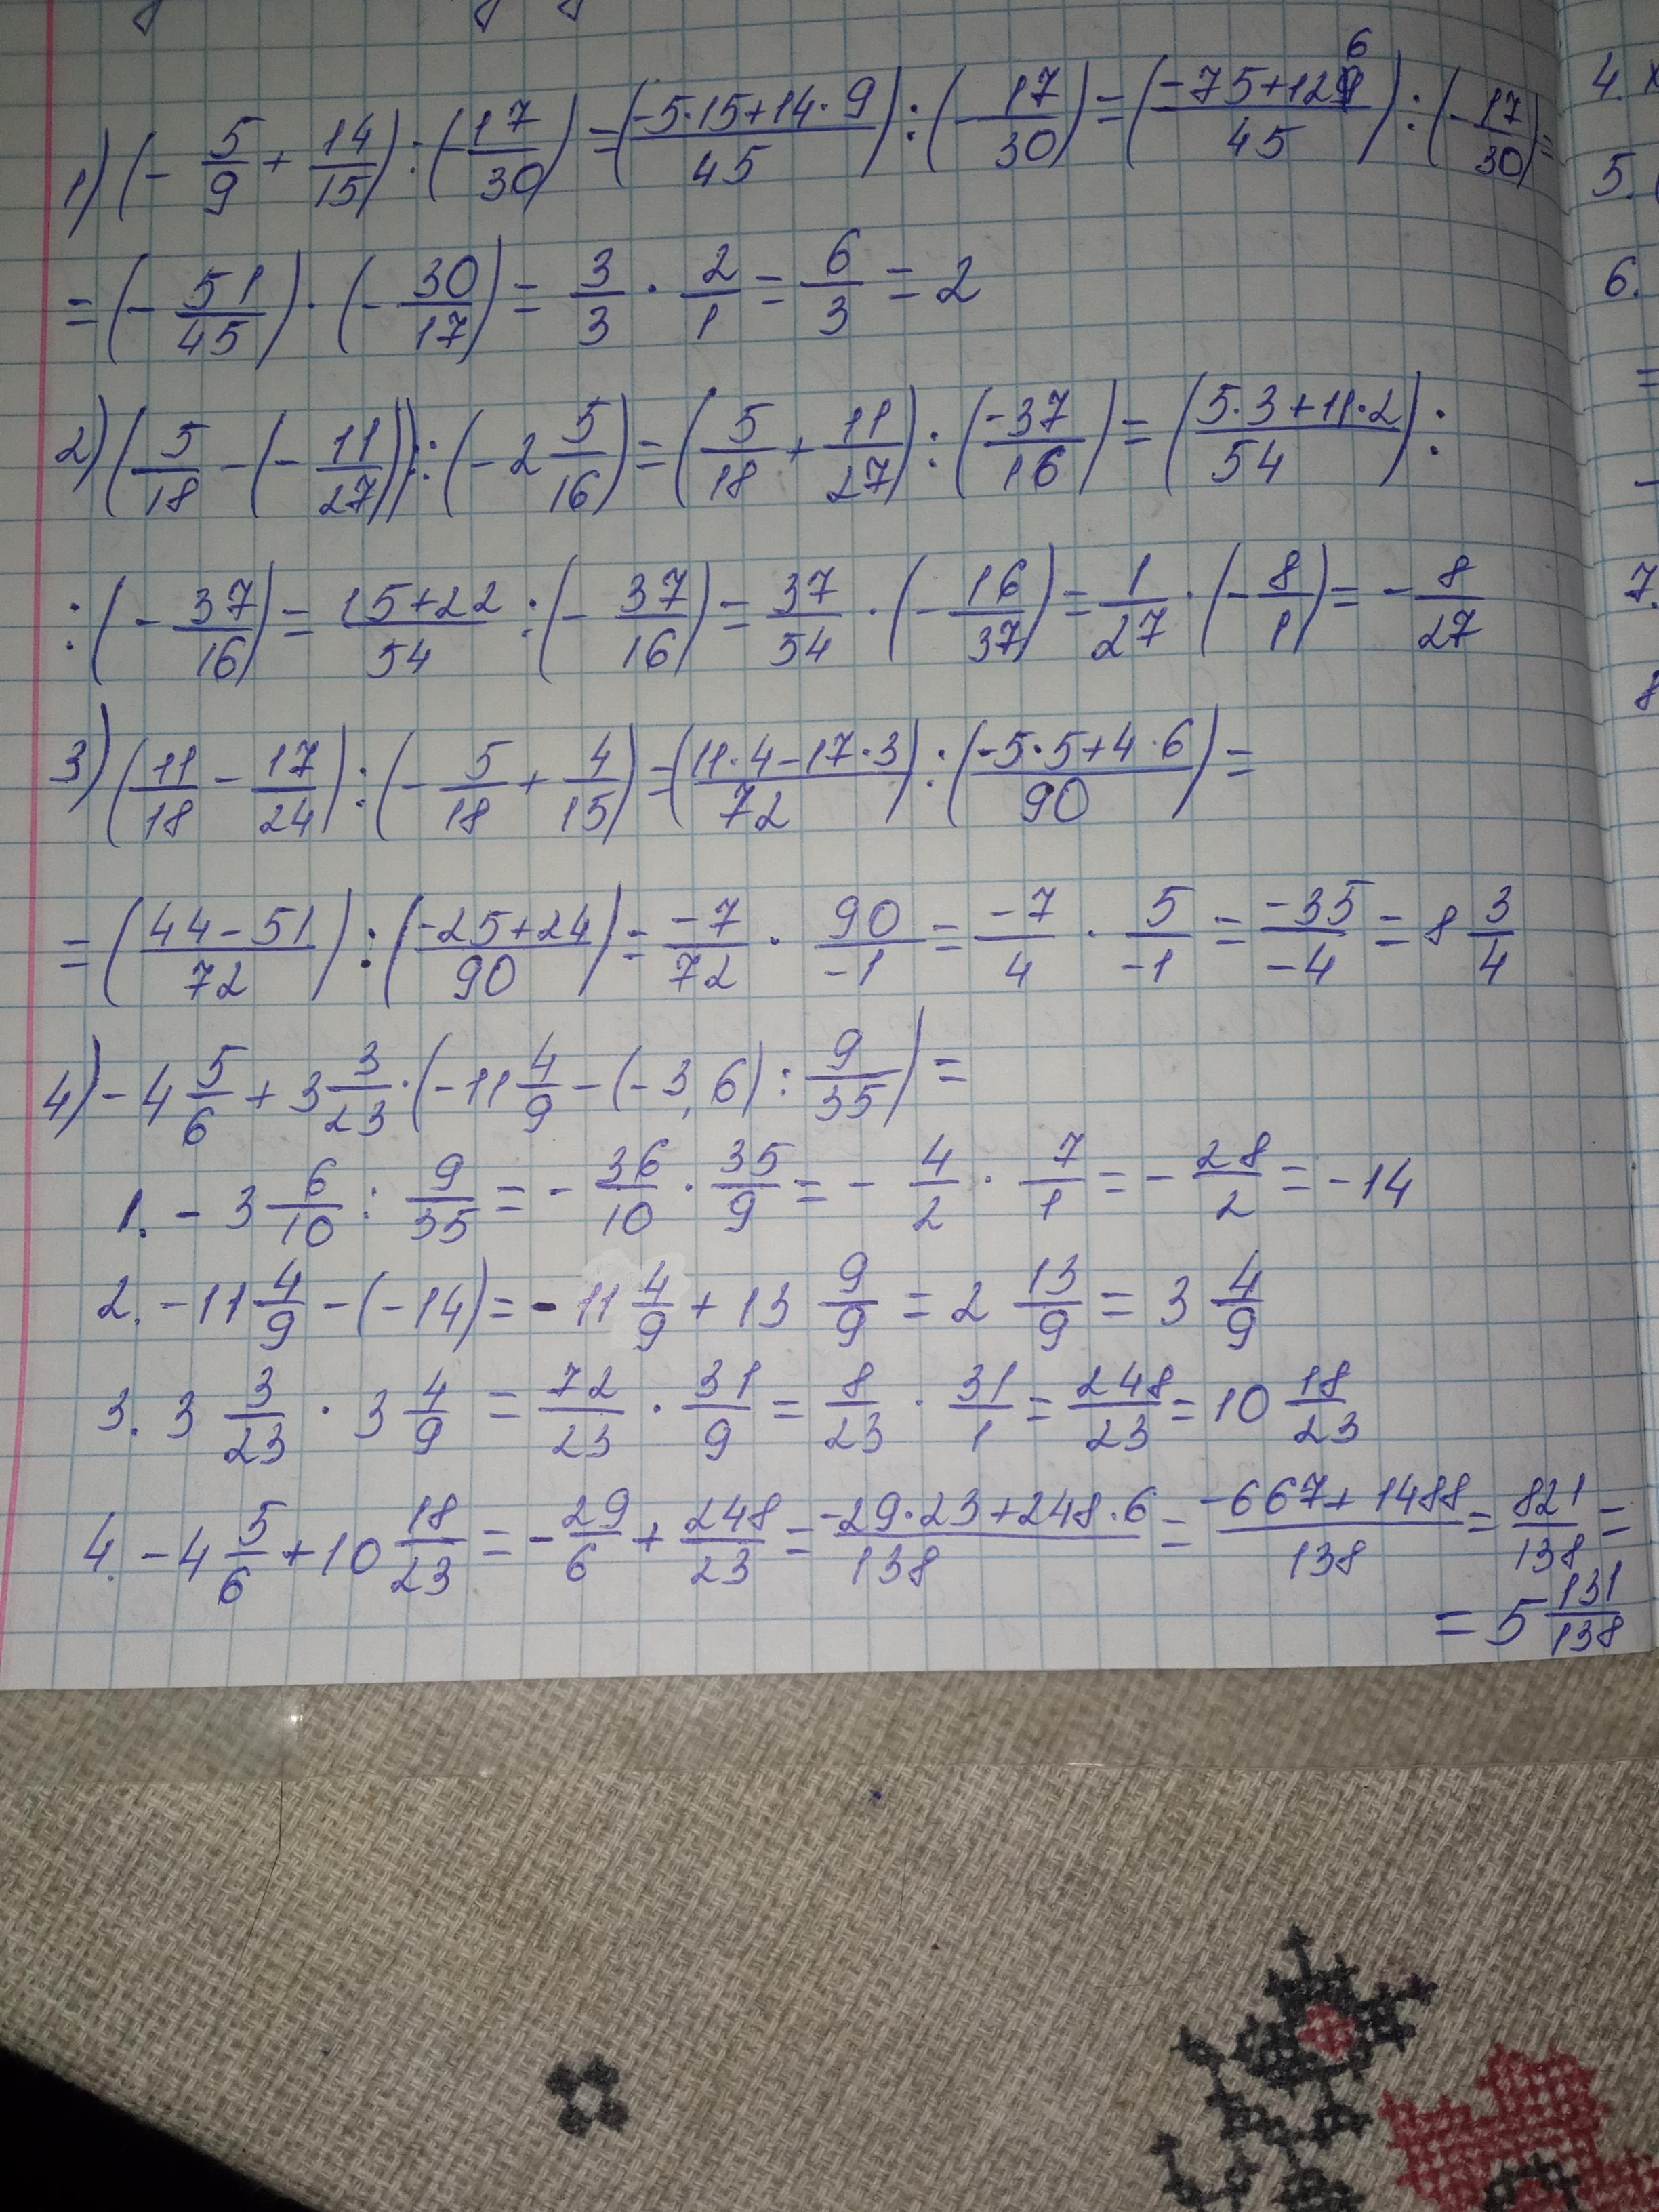 1) (- 5/9 + 14/15) : (- 17/30) = (-5·15+14·9)/45 : (- 17/30) = (-75+126)/45 : (- 17/30) =
= (- 51/45) · (- 30/17) = 3/3 · 2/1 = 6/3 = 2
2) (5/18 - (- 11/27)) : (- 2 5/16) = (5/18 + 11/27) : (-37/16) = (5·3+11·2)/54 :
: (- 37/16) = 15+22/54 : (- 37/16) = 37/54 · (- 16/37) = 1/27 · (- 8/1) = - 8/27
3) (11/18 - 17/24) : (- 5/18 + 4/15) = (11·4-17·3)/72 : (-5·5+4·6)/90 =
= (44-51)/72 : (-25+24)/90 = -7/72 · 90/-1 = -7/4 · 5/-1 = -35/-4 = 8 3/4
4) - 4 5/6 + 3 3/23 · (-11 4/9 - (-3,6) : 9/35) =
1. - 3 6/10 : 9/35 = - 36/10 · 35/9 = - 4/2 · 7/1 = - 28/2 = -14
2. -11 4/9 - (-14) = -11 4/9 + 13 9/9 = 2 13/9 = 3 4/9
3. 3 3/23 · 3 4/9 = 72/23 · 31/9 = 8/23 · 31/1 = 248/23 = 10 18/23
4. - 4 5/6 + 10 18/23 = - 29/6 + 248/23 = -29·23+248·6/138 = -667+1488/138 = 821/138 =
= 5 131/138
4.
5.
6.
=
7.
8